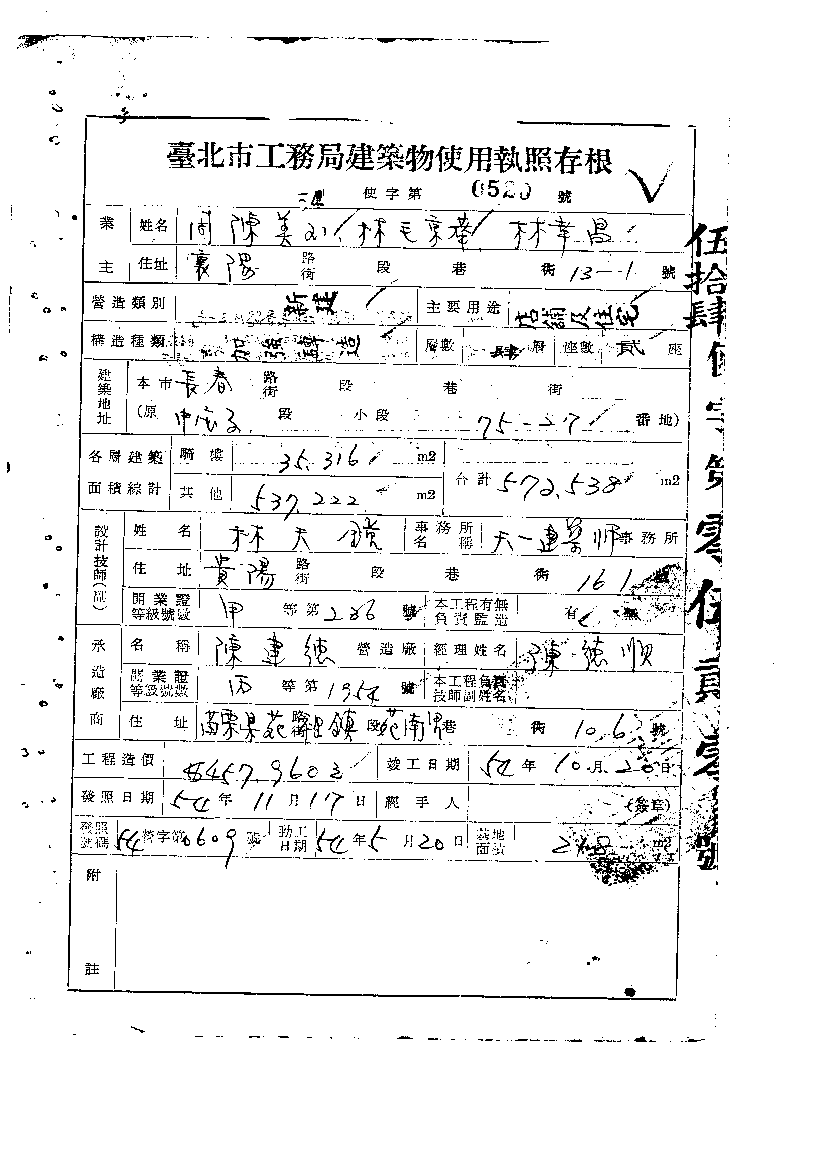 臺北市工務局建築物使用執照存根
使字第 0520 號
業主 姓名 周陳美 林毛京華 林幸昌
住址 襄陽 路街 段 巷 街 13-1 號
營造類別 新建 主要用途 店鋪及住宅
構造種類 加強磚造 層數 肆層 座數 貳座
建築地址 本市 長春 路街 段 巷 街
(原 中庄子 段 小段 75-27 番地)
各層建築面積綜計 騎樓 35.316 m2
其他 537.222 m2 合計 572.538 m2
設計技師(副) 姓名 林天 事務所名稱 天一建築師事務所
住址 貴陽 路街 段 巷 街 161 號
開業證等級號數 甲 等第 286 號 本工程有無負責監造 有 無
承造廠商 名稱 陳建德 營造廠 經理姓名 陳德順
開業證等級號數 丙 等第 1954 號 本工程負責技師副姓名
住址 苗栗縣苑裡鎮 段 苑南 巷 街 106 號
工程造價 $457,960 竣工日期 54年10月20日
發照日期 54年11月17日 經手人 (簽章)
發照號碼 54 營字第 0609 號 動工日期 54年5月20日 基地面積 m2
附註
伍拾肆使字第零伍貳零號